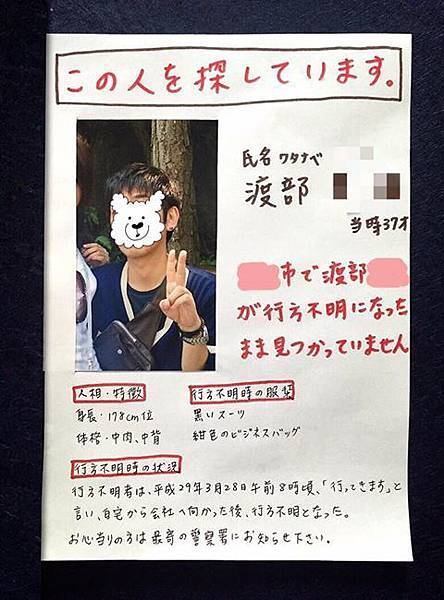 この人を探しています。
氏名 ワタナベ
渡部
当時37才
市で渡部
が行方不明になった
まま見つかっていません
人相・特徴
身長・178cm位
体格・中肉、中背
行方不明時の服装
黒いスーツ
紺色のビジネスバッグ
行方不明時の状況
行方不明者は、平成29年3月28日午前8時頃、「行ってきます」と
言い、自宅から会社へ向かった後、行方不明となった。
お心当りの方は最寄の警察署にお知らせ下さい。